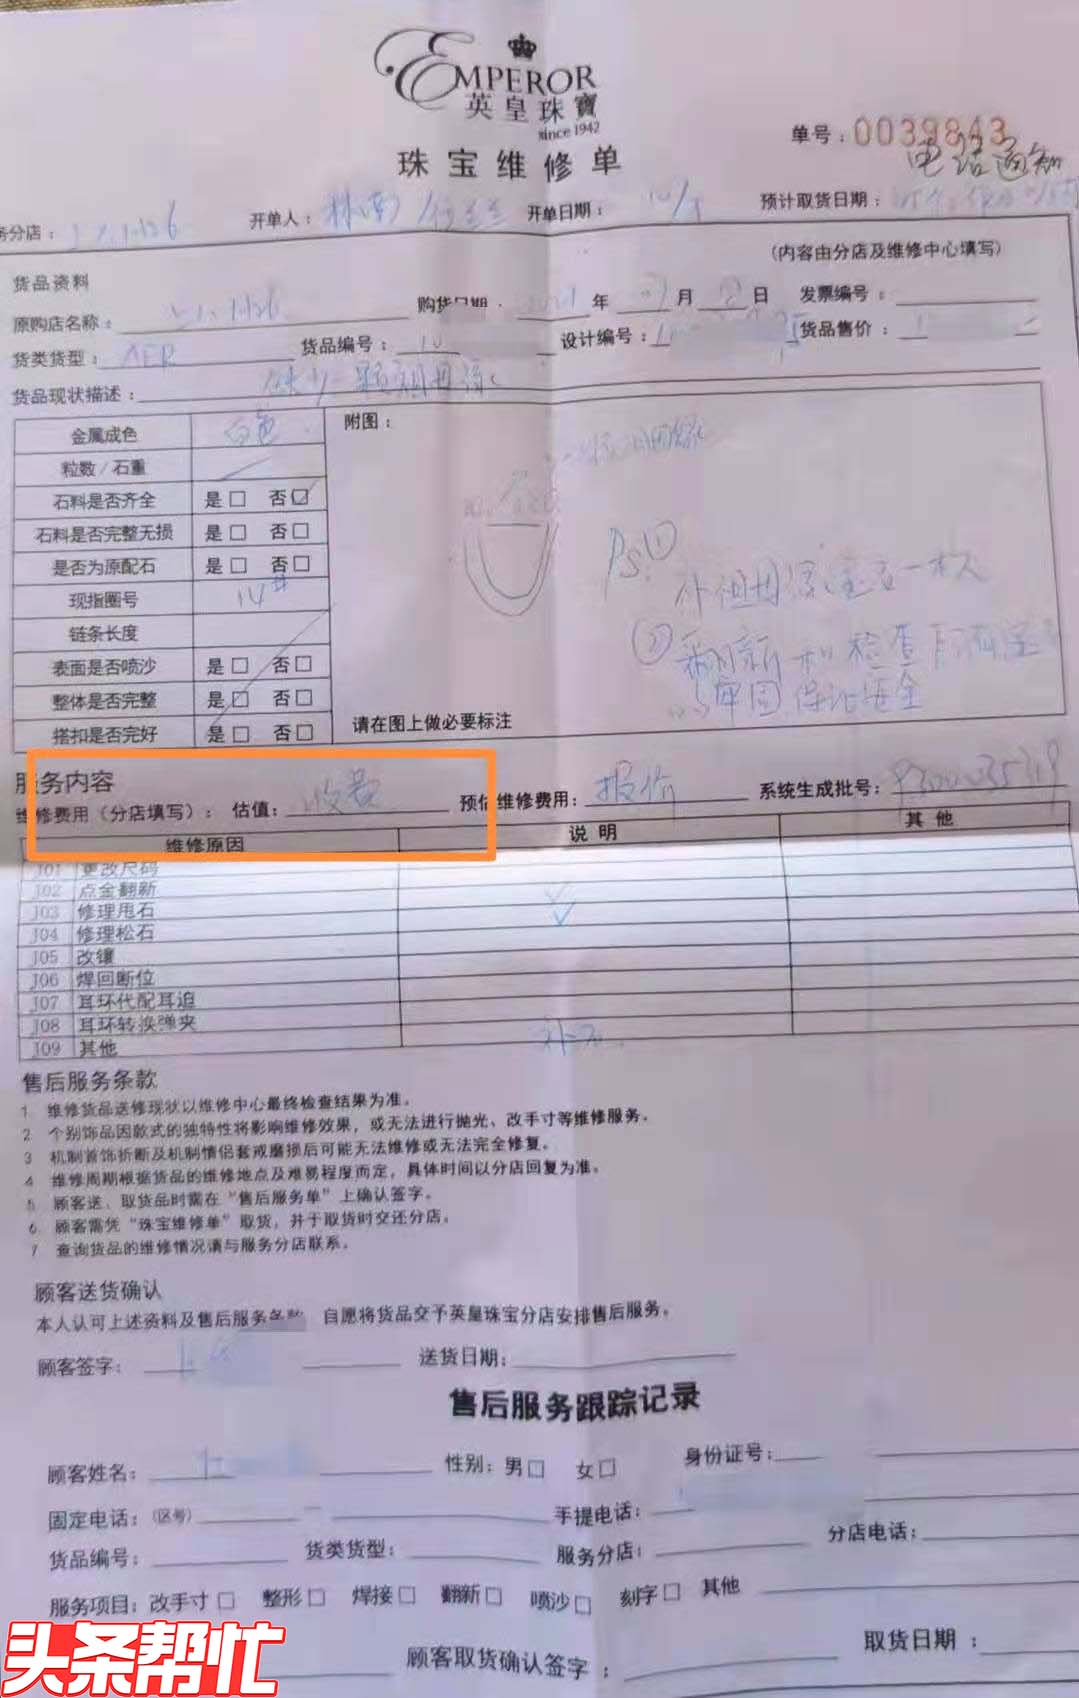 EMPEROR
英皇珠寶
since 1942
珠宝维修单
单号：0039843
电话通知
务分店：
开单人：
开单日期：
预计取货日期：
(内容由分店及维修中心填写)
货品资料
原购店名称：
购货日期：
年 月 日
发票编号：
货类货型：
货品编号：
设计编号：
货品售价：
货品现状描述：缺少一颗祖母绿
金属成色 白色
附图：
粒数/石重
石料是否齐全 是□ 否☑
石料是否完整无损 是□ 否□
是否为原配石 是□ 否□
现指圈号 14#
链条长度
表面是否喷沙 是□ 否□
整体是否完整 是□ 否□
搭扣是否完好 是□ 否□
Ps①
补祖母绿宝石一粒
② 翻新和检查
牢固 保证安全
请在图上做必要标注
服务内容
维修费用（分店填写）： 估值：收费 预估维修费用：报价 系统生成批号：
维修原因 说明 其他
J01 更改尺码
J02 点金翻新
J03 修理甩石 ✓
J04 修理松石
J05 改镶
J06 焊回断位
J07 耳环代配耳迫
J08 耳环转换弹夹
J09 其他
售后服务条款
1 维修货品送修现状以维修中心最终检查结果为准。
2 个别饰品因款式的独特性将影响维修效果，或无法进行抛光、改手寸等维修服务。
3 机制首饰折断及机制情侣套戒磨损后可能无法维修或无法完全修复。
4 维修周期根据货品的维修地点及难易程度而定，具体时间以分店回复为准。
5 顾客送、取货品时需在“售后服务单”上确认签字。
6 顾客需凭“珠宝维修单”取货，并于取货时交还分店。
7 查询货品的维修情况请与服务分店联系。
顾客送货确认
本人认可上述资料及售后服务条款 自愿将货品交予英皇珠宝分店安排售后服务。
顾客签字：
送货日期：
售后服务跟踪记录
顾客姓名：
性别：男□ 女□
身份证号：
固定电话：（区号）
手提电话：
货品编号：
货类货型：
服务分店：
分店电话：
服务项目：改手寸□ 整形□ 焊接□ 翻新□ 喷沙□ 刻字□ 其他
顾客取货确认签字：
取货日期：
头条帮忙